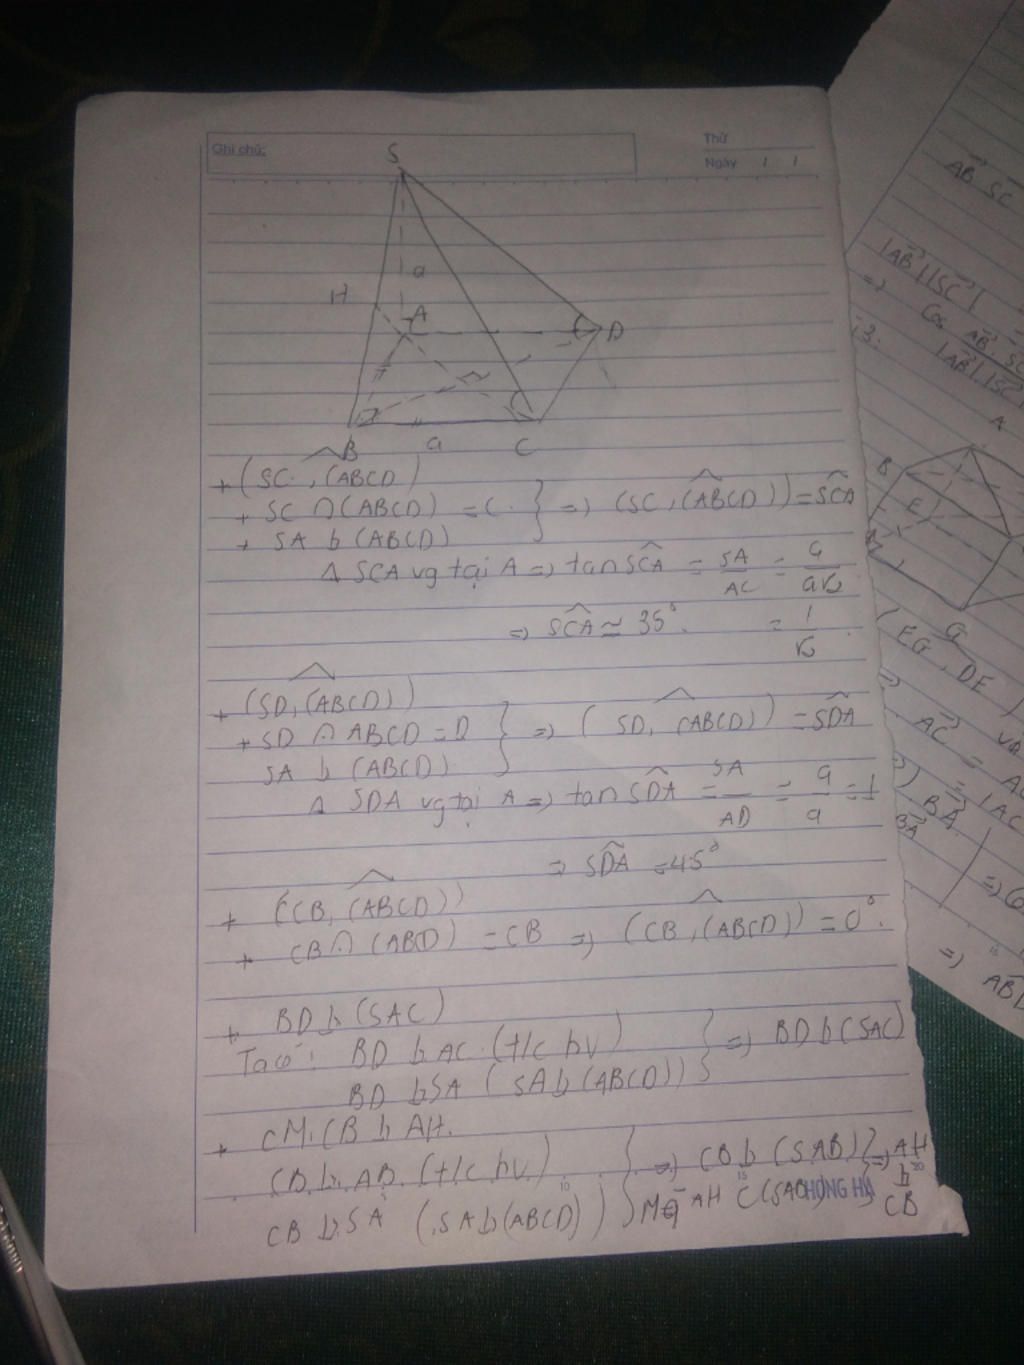 Ghi chú:
Thứ
Ngày / /
S
a
H
A
D
B
a
C
+ (SC, (ABCD)
+ SC ∩ (ABCD) = C. } => (SC, (ABCD)) = SCA
+ SA ⊥ (ABCD)
Δ SCA vg tại A => tan SCA = SA/AC = a/a√2
=> SCA ≃ 35°. = 1/√2
+ (SD, (ABCD))
+ SD ∩ ABCD = D } => (SD, (ABCD)) = SDA
SA ⊥ (ABCD)
Δ SDA vg tại A => tan SDA = SA/AD = a/a = 1
=> SDA = 45°
+ (CB, (ABCD))
+ CB ∩ (ABCD) = CB => (CB, (ABCD)) = 0°.
+ BD ⊥ (SAC)
Ta có: BD ⊥ AC (t/c hv) } => BD ⊥ (SAC)
BD ⊥ SA (SA ⊥ (ABCD))
+ CM. CB ⊥ AH.
CB ⊥ AB (t/c hv) } => CB ⊥ (SAB) } => AH
CB ⊥ SA (SA ⊥ (ABCD)) Mà AH ⊂ (SAB) ⊥ CB
HỒNG HÀ
AB SC
|AB|.|SC|
=> Cos AB. SC
|AB|.|SC|
13.
A
B
E
G
(EG, DE)
=>
AC
BA
BA
|AC
=> AB